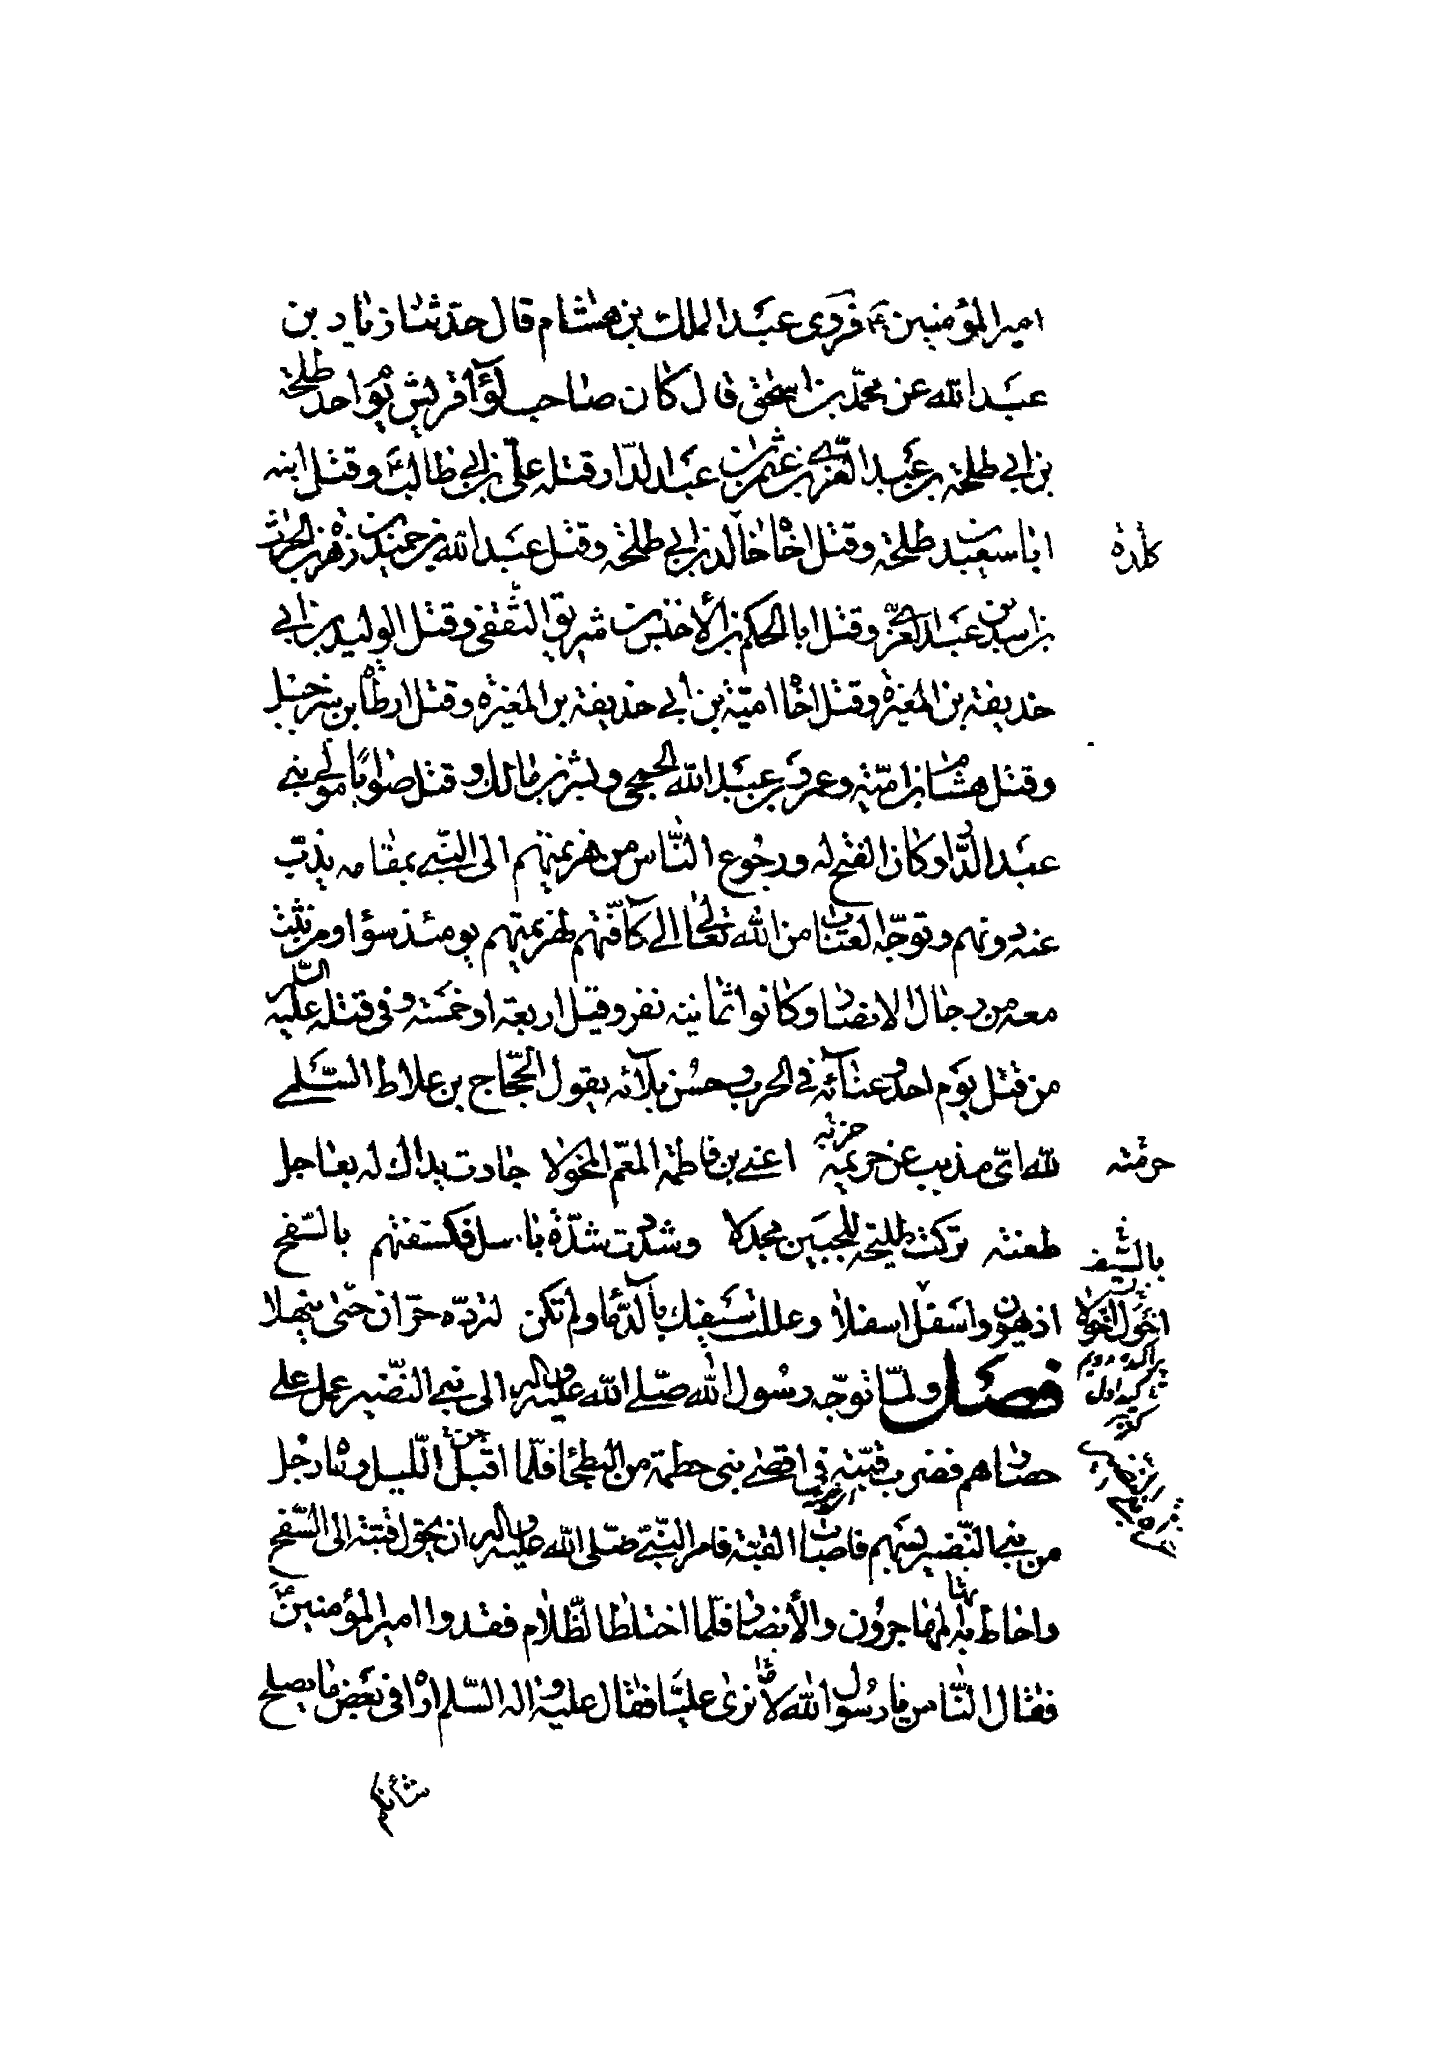 امير المؤمنين ع فروى عبد الملك بن هشام قال حدثنا زياد بن
عبد الله عن محمد بن اسحق قال كان صاحب لوآء قريش يوم احد طلحة
بن ابي طلحة بن عبد العزى بن عثمان بن عبد الدار قتله علي بن ابي طالب ع وقتل ابنه
ابا سعيد بن طلحة وقتل اخاه خالد بن ابي طلحة وقتل عبد الله بن حميد بن زهرة بن الحارث
بن اسد بن عبد العزى وقتل ابا الحكم بن الأخنس بن شريق الثقفى وقتل الوليد بن ابي
حذيفة بن المغيرة وقتل اخاه امية بن أبي حذيفة بن المغيرة وقتل ارطاة بن شرحبيل
وقتل هشام بن امية وعمرو بن عبد الله الجمحى وبشر بن مالك وقتل صوابا مولى بني
عبد الدار وكان الفتح له ورجوع النّاس من هزيمتهم الى النبي بمقامه يذبّ
عنه دونهم وتوجّه العتاب من الله تعالى الى كافّتهم لهزيمتهم يومئذ سواه ومن ثبت
معه من رجال الانصار وكانوا ثمانية نفر وقيل اربعة او خمسة وفى قتله عليه السّلم
من قتل يوم احد وعنآئه في الحرب وحسن بلآئه يقول الحجّاج بن علاط السّلمي
لله اىّ مذبب عن حريمه حزبه اعني بن فاطمة المعمّ المخولا جادت يداك له بعاجل
طعنة تركت طليحة للجبين مجدلا وشددت شدّة باسل فكشفتهم بالسّفح
اذ يهوون واسفل اسفلا وعللت سيفك بالدّمآء ولم تكن لتردّه حرّان حتّى ينهلا
فصل ولمّا توجّه رسول الله صلّى الله عليه وآله الى بني النضير عمل على
حصارهم فضرب قبّته في اقصى بني خطمة من البطحآء فلمّا اقبل جن اللّيل رماه رجل
من بني النّضير بسهم فاصاب القبّة فامر النبّي صلّى الله عليه وآله ان يحول قبّته الى السّفح
واحاط به بها المهاجرون والأنصار فلمّا اختلط الظّلام فقدوا امير المؤمنين ع
فقال النّاس يا رسول الله لا نرى عليّا فقال عليه وآله السّلم اراه فى بعض ما يصلح
شأنكم
كلدة
حرمته
بالسّيف